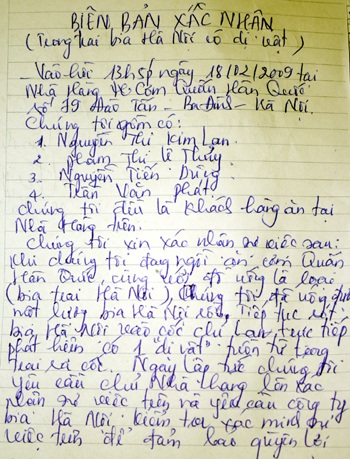 BIÊN BẢN XÁC NHẬN
(Trong trai bia Hà Nội có dị vật)
- Vào hồi 13h5p ngày 18/02/2009 tại
Nhà Hàng Cơm Quán Hàn Quốc
số 79 Đào Tấn - Ba Đình - Hà Nội.
Chúng tôi gồm có:
1. Nguyễn Thị Kim Lan.
2. Phạm Thị Lê Thủy
3. Nguyễn Tiến Dũng
4. Trần Văn Phát
Chúng tôi đều là khách hàng ăn tại
Nhà Hàng trên.
Chúng tôi xin xác nhận sự việc sau:
Khi chúng tôi đang ngồi ăn cơm Quán
Hàn Quốc, cùng với đồ uống là loại
(bia trai Hà Nội), Chúng tôi đã uống
một lượng bia Hà Nội rồi, tiếp tục rót
bia Hà Nội vào cốc chị Lan trực tiếp
phát hiện có 1 "dị vật" tuồn từ trong
trai ra cốc. Ngay lập tức chúng tôi
yêu cầu chủ Nhà hàng lên xác
nhận sự việc trên và yêu cầu công ty
bia Hà Nội kiểm tra, xác minh sự
việc trên để đảm bảo quyền lợi